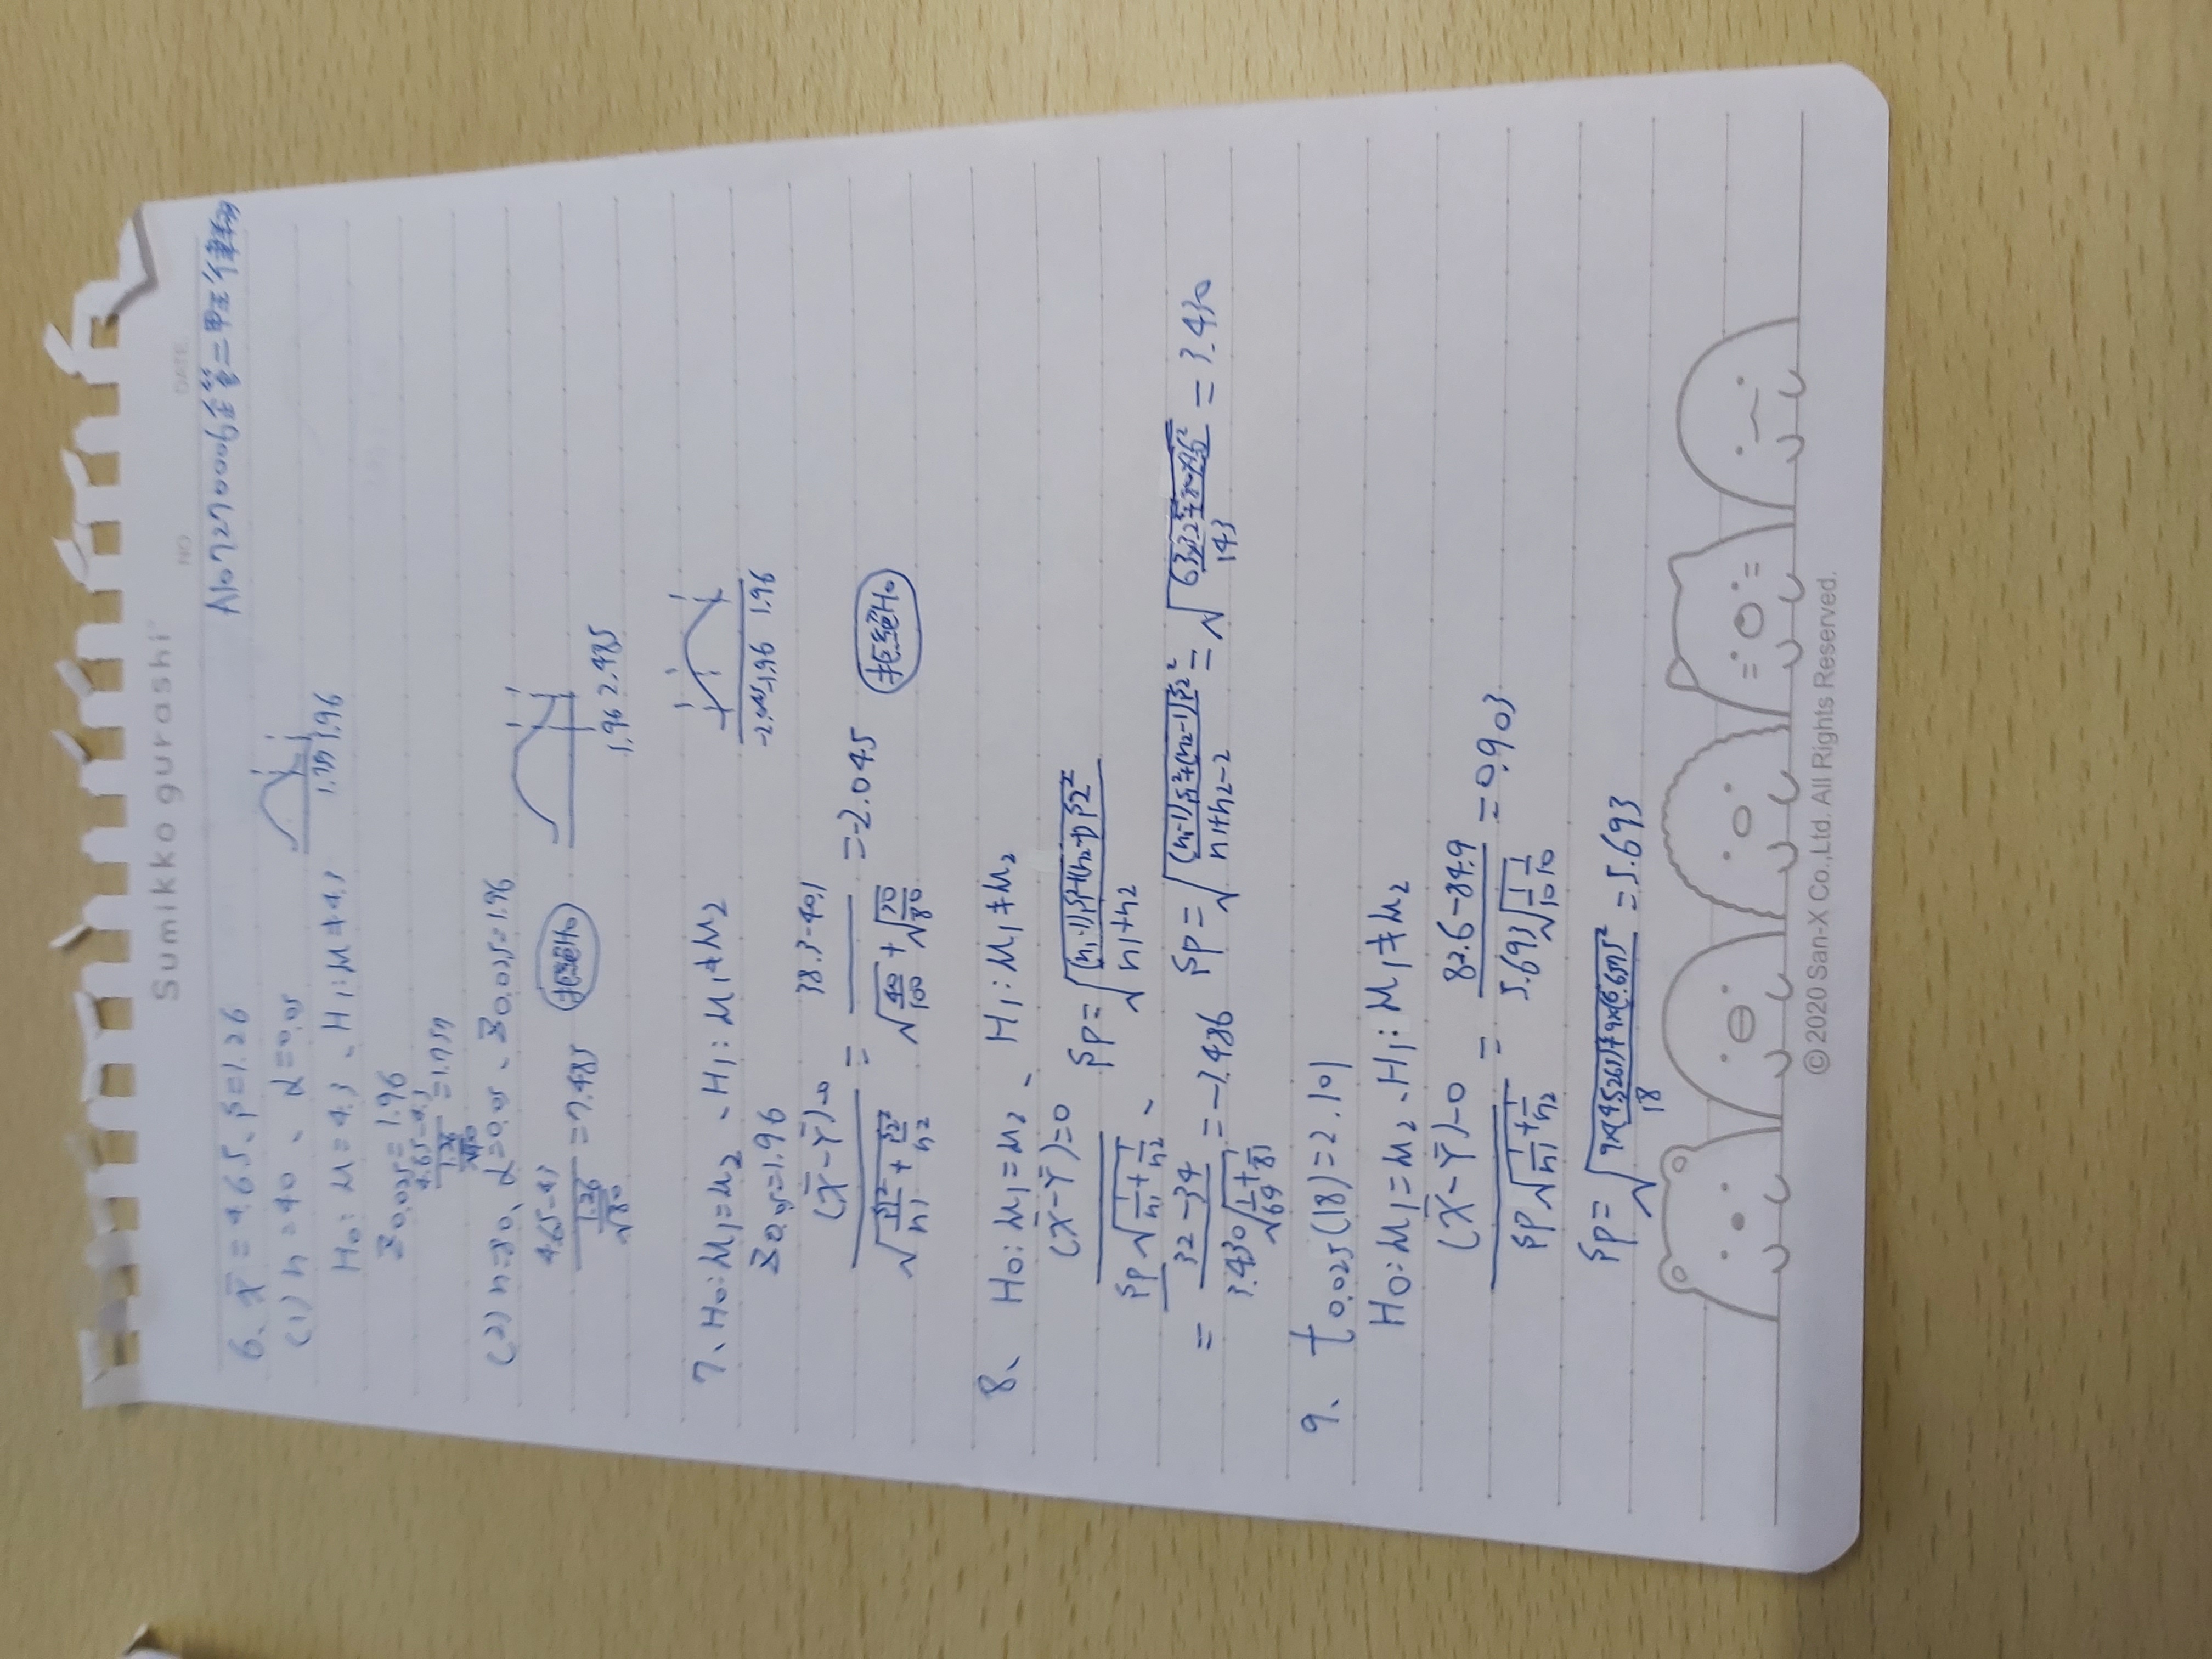 Sumikko gurashi
NO. DATE.
A107270006企管二甲
6、x̄=4.65、s=1.26
(1) n=40、α=0.05
1.757 1.96
H0: μ=4.3、H1: μ≠4.3
Z0.025=1.96
(4.65-4.3)/(1.26/√40)=1.757
(2) n=80、α=0.05、Z0.025=1.96
(4.65-4.3)/(1.26/√80)=2.485 拒絕H0
1.96 2.485
7、H0: μ1=μ2、H1: μ1≠μ2
Z0.05=1.96
-2.045 -1.96 1.96
((X̄-Ȳ)-0)/√(s1²/n1+s2²/n2) = (38.3-40.1)/(√(40/100)+√(30/80)) =-2.045 拒絕H0
8、H0: μ1=μ2、H1: μ1≠μ2
((X̄-Ȳ)=0)/(sp√(1/n1+1/n2))、sp=√(((n1-1)s1²+(n2-1)s2²)/(n1+n2))
= (32-34)/(3.430√(1/64+1/81)) =-3.486 sp=√(((n1-1)s1²+(n2-1)s2²)/(n1+n2-2)) = √( /143) = 3.430
9、t0.025(18)=2.101
H0: μ1=μ2、H1: μ1≠μ2
((X̄-Ȳ)-0)/(sp√(1/n1+1/n2)) = (82.6-84.9)/(5.693√(1/10 1/10)) =0.903
sp=√( /18) =5.693
© 2020 San-X Co.,Ltd. All Rights Reserved.